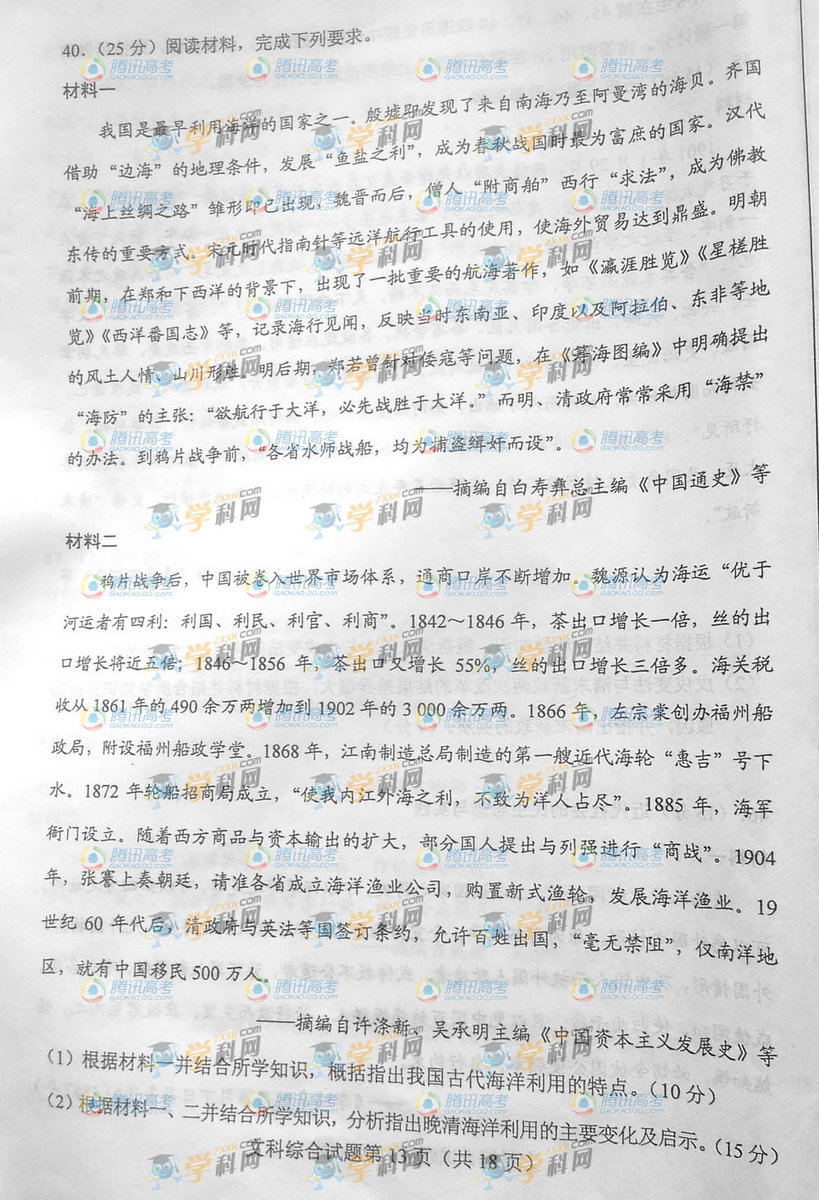 40.（25分）阅读材料，完成下列要求。
材料一
我国是最早利用海洋的国家之一。殷墟即发现了来自南海乃至阿曼湾的海贝。齐国
借助“边海”的地理条件，发展“鱼盐之利”，成为春秋战国时最为富庶的国家。汉代
“海上丝绸之路”雏形即已出现，魏晋而后，僧人“附商舶”西行“求法”，成为佛教
东传的重要方式。宋元时代指南针等远洋航行工具的使用，使海外贸易达到鼎盛。明朝
前期，在郑和下西洋的背景下，出现了一批重要的航海著作，如《瀛涯胜览》《星槎胜
览》《西洋番国志》等，记录海行见闻，反映当时东南亚、印度以及阿拉伯、东非等地
的风土人情、山川形胜。明后期，郑若曾针对倭寇等问题，在《筹海图编》中明确提出
“海防”的主张：“欲航行于大洋，必先战胜于大洋。”而明、清政府常常采用“海禁”
的办法。到鸦片战争前，“各省水师战船，均为捕盗缉奸而设”。
——摘编自白寿彝总主编《中国通史》等
材料二
鸦片战争后，中国被卷入世界市场体系，通商口岸不断增加。魏源认为海运“优于
河运者有四利：利国、利民、利官、利商”。1842～1846年，茶出口增长一倍，丝的出
口增长将近五倍；1846～1856年，茶出口又增长55%，丝的出口增长三倍多。海关税
收从1861年的490余万两增加到1902年的3 000余万两。1866年，左宗棠创办福州船
政局，附设福州船政学堂。1868年，江南制造总局制造的第一艘近代海轮“惠吉”号下
水。1872年轮船招商局成立，“使我内江外海之利，不致为洋人占尽”。1885年，海军
衙门设立。随着西方商品与资本输出的扩大，部分国人提出与列强进行“商战”。1904
年，张謇上奏朝廷，请准各省成立海洋渔业公司，购置新式渔轮，发展海洋渔业。19
世纪60年代后，清政府与英法等国签订条约，允许百姓出国，“毫无禁阻”，仅南洋地
区，就有中国移民500万人。
——摘编自许涤新、吴承明主编《中国资本主义发展史》等
（1）根据材料一并结合所学知识，概括指出我国古代海洋利用的特点。（10分）
（2）根据材料一、二并结合所学知识，分析指出晚清海洋利用的主要变化及启示。（15分）
文科综合试题第13页（共18页）